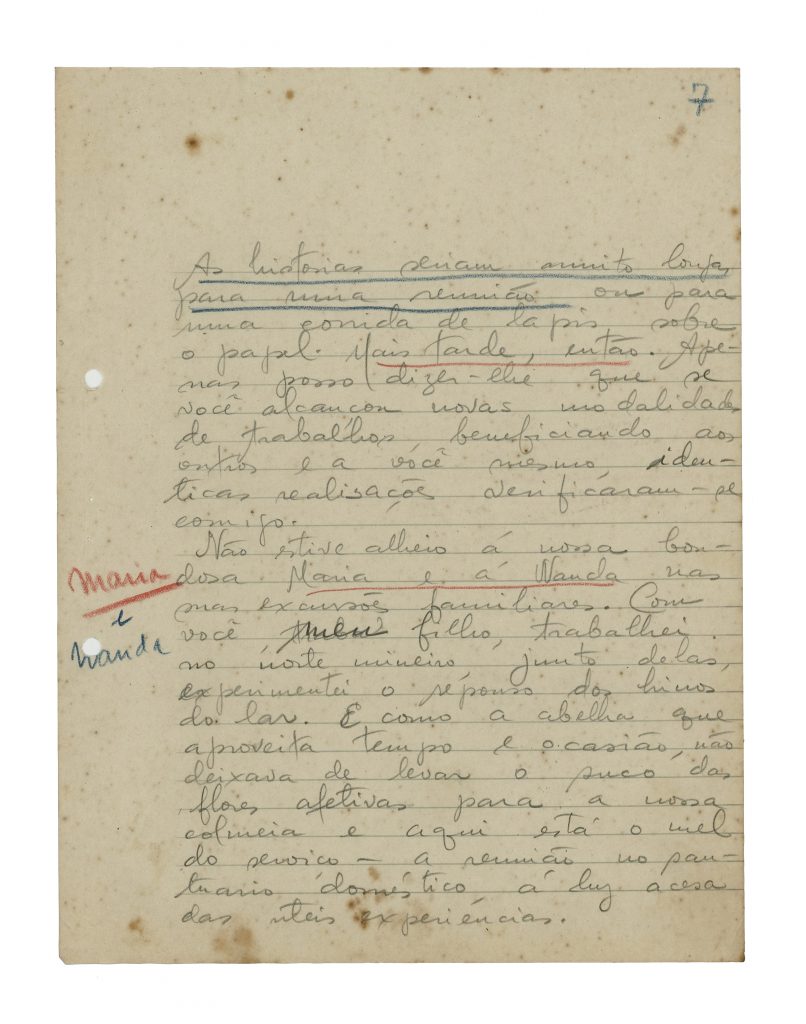 7
As historias seriam muito longas
para uma reunião ou para
uma corrida de lapis sobre
o papel. Mais tarde, então. Ape-
nas posso dizer-lhe que se
você alcançou novas modalidades
de trabalhos, beneficiando aos
outros e a você mesmo, iden-
ticas realisações verificáram-se
comigo.
Não estive alheio á nossa bon-
dosa Maria e á Wanda nas
suas excursões familiares. Com
você meu filho, trabalhei
no norte mineiro, junto delas,
experimentei o repouso dos hinos
do lar. E como a abelha que
aproveita tempo e ocasião, não
deixava de levar o suco das
flores afetivas para a nossa
colmeia e aqui está o mel
do serviço — a reunião no san-
tuario doméstico á luz acesa
das úteis experiências.
Maria
e
Wanda